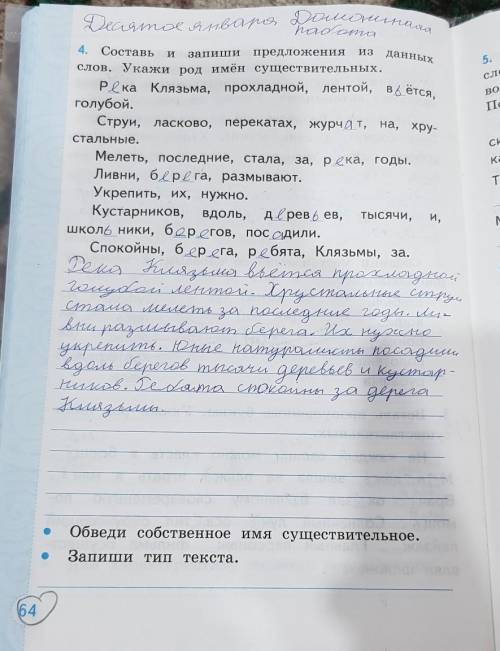 Десятое января Домашняя
работа
4. Составь и запиши предложения из данных
слов. Укажи род имён существительных.
Река Клязьма, прохладной, лентой, вьётся,
голубой.
Струи, ласково, перекатах, журчат, на, хру-
стальные.
Мелеть, последние, стала, за, река, годы.
Ливни, берега, размывают.
Укрепить, их, нужно.
Кустарников, вдоль, деревьев, тысячи, и,
школьники, берегов, посадили.
Спокойны, берега, ребята, Клязьмы, за.
Река Клязьма вьётся прохладной
голубой лентой. Хрустальные струи
стала мелеть за последние годы. Ли-
вни размывают берега. Их нужно
укрепить. Юные натуралисты посадили
вдоль берегов тысячи деревьев и кустар-
ников. Ребята спокойны за дерега
Клязьмы.
Обведи собственное имя существительное.
Запиши тип текста.
64
5.
сл
во
П
с
к
Т